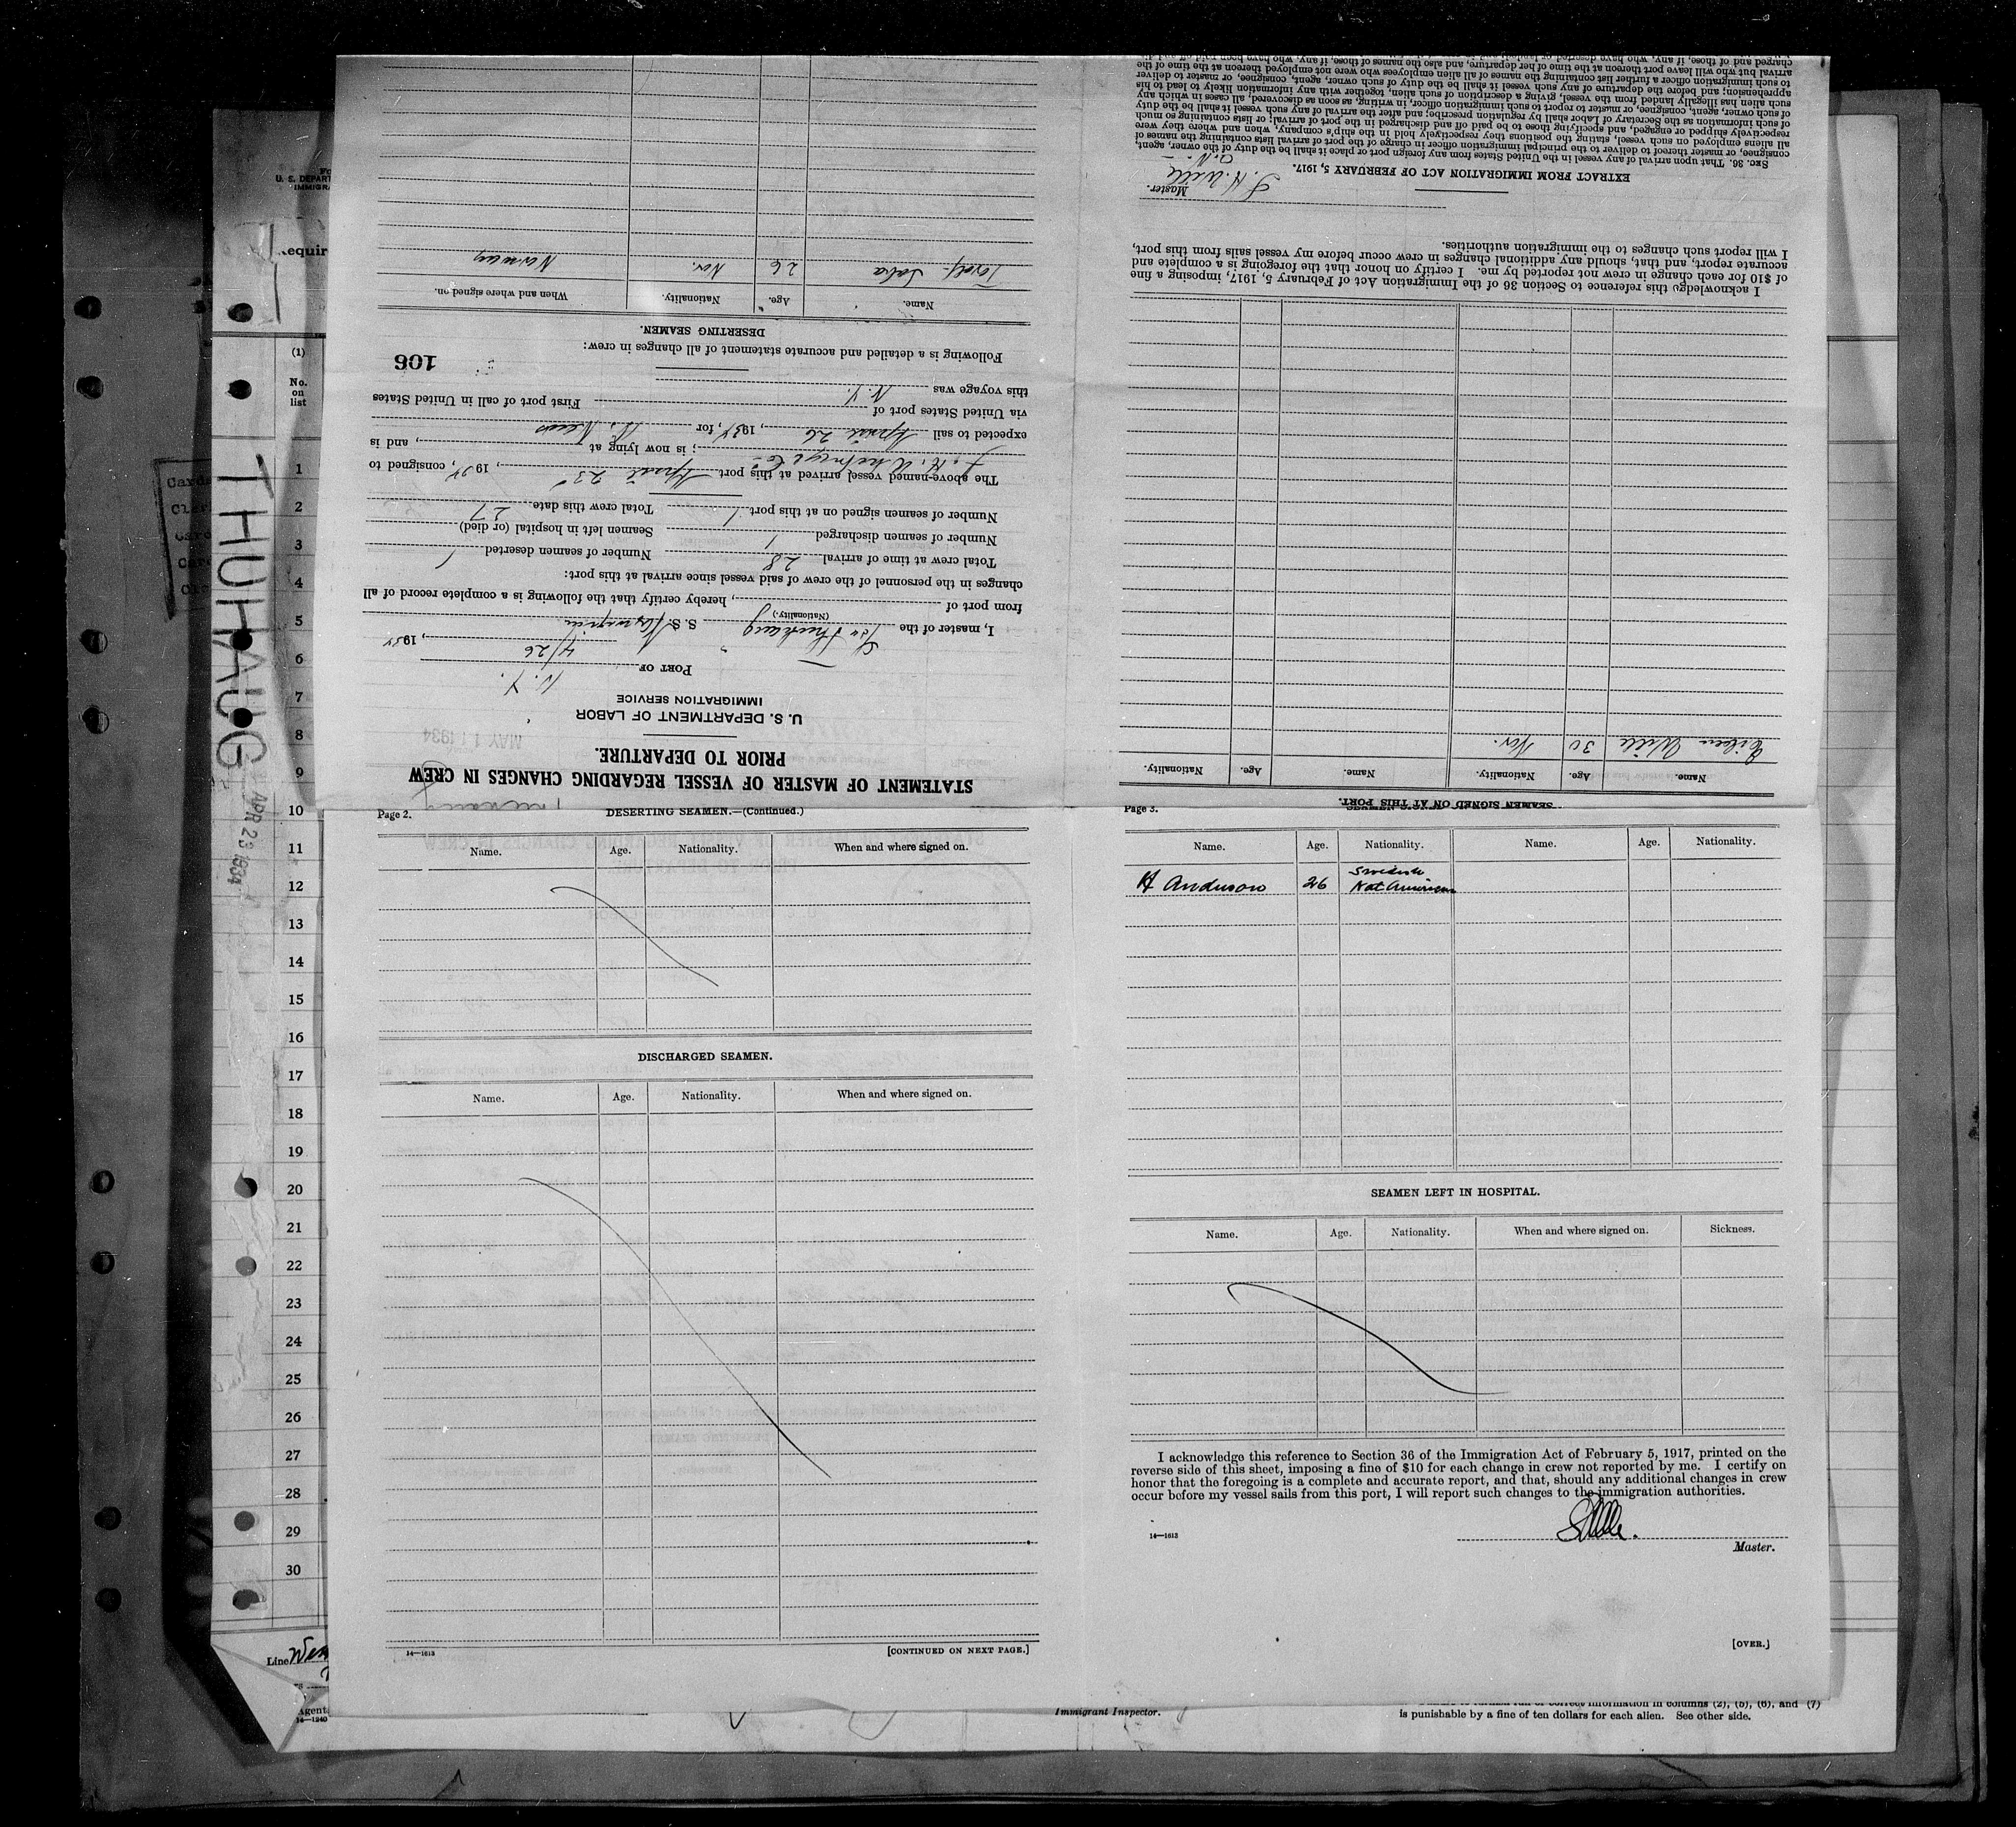 STATEMENT OF MASTER OF VESSEL REGARDING CHANGES IN CREW
PRIOR TO DEPARTURE.
MAY 11 1934
U. S. DEPARTMENT OF LABOR
IMMIGRATION SERVICE
PORT OF N. Y.
4/26, 1934
I, master of the Norwegian S. S. Thurhaug
(Nationality.)
from port of , hereby certify that the following is a complete record of all
changes in the personnel of the crew of said vessel since arrival at this port:
Total crew at time of arrival 28 Number of seamen deserted 1
Number of seamen discharged 1 Seamen left in hospital (or died)
Number of seamen signed on at this port 1 Total crew this date 27
The above-named vessel arrived at this port April 23, 1934, consigned to
; is now lying at , and is
expected to sail April 26, 1934, for N. News
via United States port of First port of call in United States
this voyage was N. Y.
106
Following is a detailed and accurate statement of all changes in crew:
DESERTING SEAMEN.
Name. Age. Nationality. When and where signed on.
26 Nor. Norway
SEAMEN SIGNED ON AT THIS PORT.
Name. Age. Nationality. Name. Age. Nationality.
Wille 30 Nor.
I acknowledge this reference to Section 36 of the Immigration Act of February 5, 1917, imposing a fine
of $10 for each change in crew not reported by me. I certify on honor that the foregoing is a complete and
accurate report, and that, should any additional changes in crew occur before my vessel sails from this port,
I will report such changes to the immigration authorities.
Wille
Master.
EXTRACT FROM IMMIGRATION ACT OF FEBRUARY 5, 1917.
SEC. 36. That upon arrival of any vessel in the United States from any foreign port or place it shall be the duty of the owner, agent,
consignee, or master thereof to deliver to the principal immigration officer in charge of the port of arrival lists containing the names of
all aliens employed on such vessel, stating the positions they respectively hold in the ship's company, when and where they were
respectively shipped or engaged, and specifying those to be paid off and discharged in the port of arrival; or lists containing so much
of such information as the Secretary of Labor shall by regulation prescribe; and after the arrival of any such vessel it shall be the duty
of such owner, agent, consignee, or master to report to such immigration officer, in writing, as soon as discovered, all cases in which any
such alien has illegally landed from the vessel, giving a description of such alien, together with any information likely to lead to his
apprehension; and before the departure of any such vessel it shall be the duty of such owner, agent, consignee, or master to deliver
to such immigration officer a further list containing the names of all alien employees who were not employed thereon at the time of the
arrival but who will leave port thereon at the time of her departure, and also the names of those, if any, who have been paid off and dis-
Page 2.
DESERTING SEAMEN.—(Continued.)
Name. Age. Nationality. When and where signed on.
DISCHARGED SEAMEN.
Name. Age. Nationality. When and where signed on.
14—1613
[CONTINUED ON NEXT PAGE.]
Page 3.
SEAMEN SIGNED ON AT THIS PORT.
Name. Age. Nationality. Name. Age. Nationality.
Swedish
H Anderson 26 Nat American
SEAMEN LEFT IN HOSPITAL.
Name. Age. Nationality. When and where signed on. Sickness.
I acknowledge this reference to Section 36 of the Immigration Act of February 5, 1917, printed on the
reverse side of this sheet, imposing a fine of $10 for each change in crew not reported by me. I certify on
honor that the foregoing is a complete and accurate report, and that, should any additional changes in crew
occur before my vessel sails from this port, I will report such changes to the immigration authorities.
14—1613
Master.
[OVER.]
U. S. DEPART
IMMIGRA
equir
(1)
No.
on
list
1
2
3
4
5
6
7
8
9
10
11
12
13
14
15
16
17
18
19
20
21
22
23
24
25
26
27
28
29
30
THURHAUG
APR 23 1934
Line
Agent
14—1240
Immigrant Inspector.
information in columns (2), (5), (6), and (7)
is punishable by a fine of ten dollars for each alien. See other side.